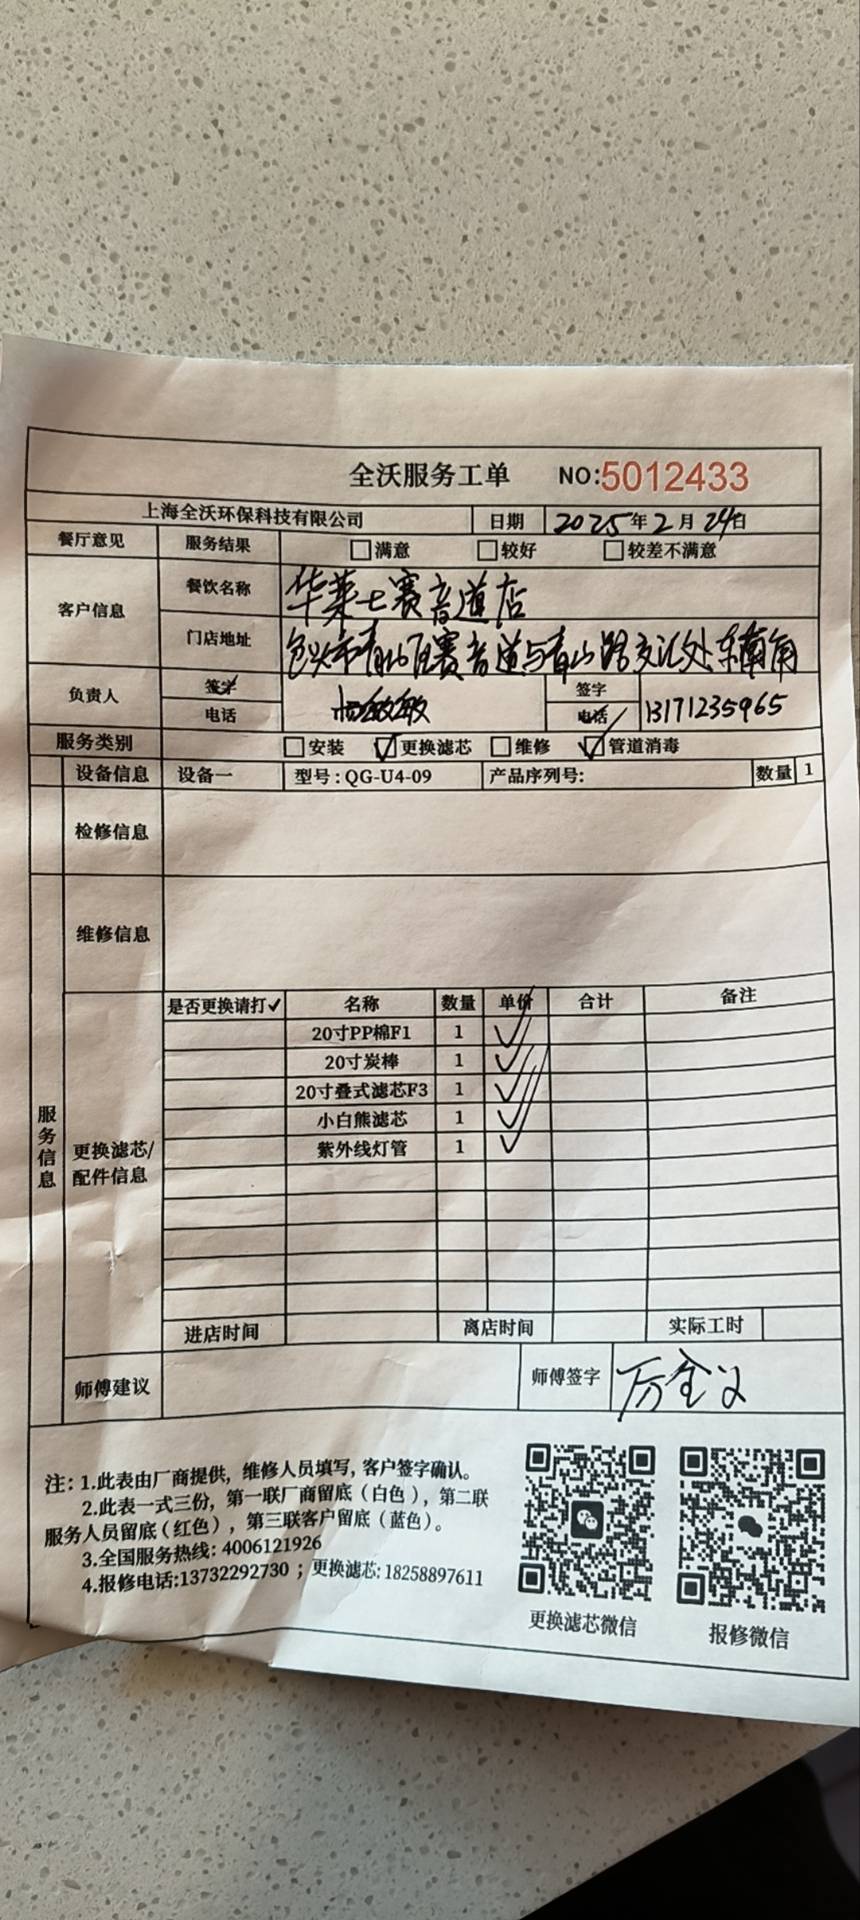 全沃服务工单 NO:5012433
上海全沃环保科技有限公司 日期 2025年2月24日
餐厅意见 服务结果 满意 较好 较差不满意
客户信息 餐饮名称 华莱士赛音道店
门店地址 包头市青山区赛音道与青山路交汇处东南角
负责人 签字 敏敏 签字
电话 电话 13171235965
服务类别 安装 ✓更换滤芯 维修 ✓管道消毒
设备信息 设备一 型号:QG-U4-09 产品序列号: 数量 1
检修信息
维修信息
服务信息
更换滤芯/配件信息
是否更换请打✓ 名称 数量 单价 合计 备注
20寸PP棉F1 1 ✓
20寸炭棒 1 ✓
20寸叠式滤芯F3 1 ✓
小白熊滤芯 1 ✓
紫外线灯管 1 ✓
进店时间 离店时间 实际工时
师傅建议 师傅签字
注: 1.此表由厂商提供, 维修人员填写, 客户签字确认。
2.此表一式三份, 第一联厂商留底(白色), 第二联
服务人员留底(红色), 第三联客户留底(蓝色)。
3.全国服务热线: 4006121926
4.报修电话:13732292730 ; 更换滤芯: 18258897611
更换滤芯微信 报修微信